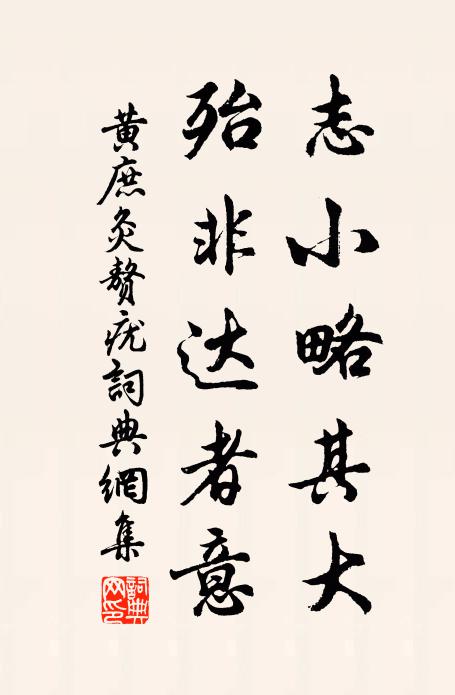 志小略其大
殆非达者意
黄庶灸赘疣詞典網集
詞典网印